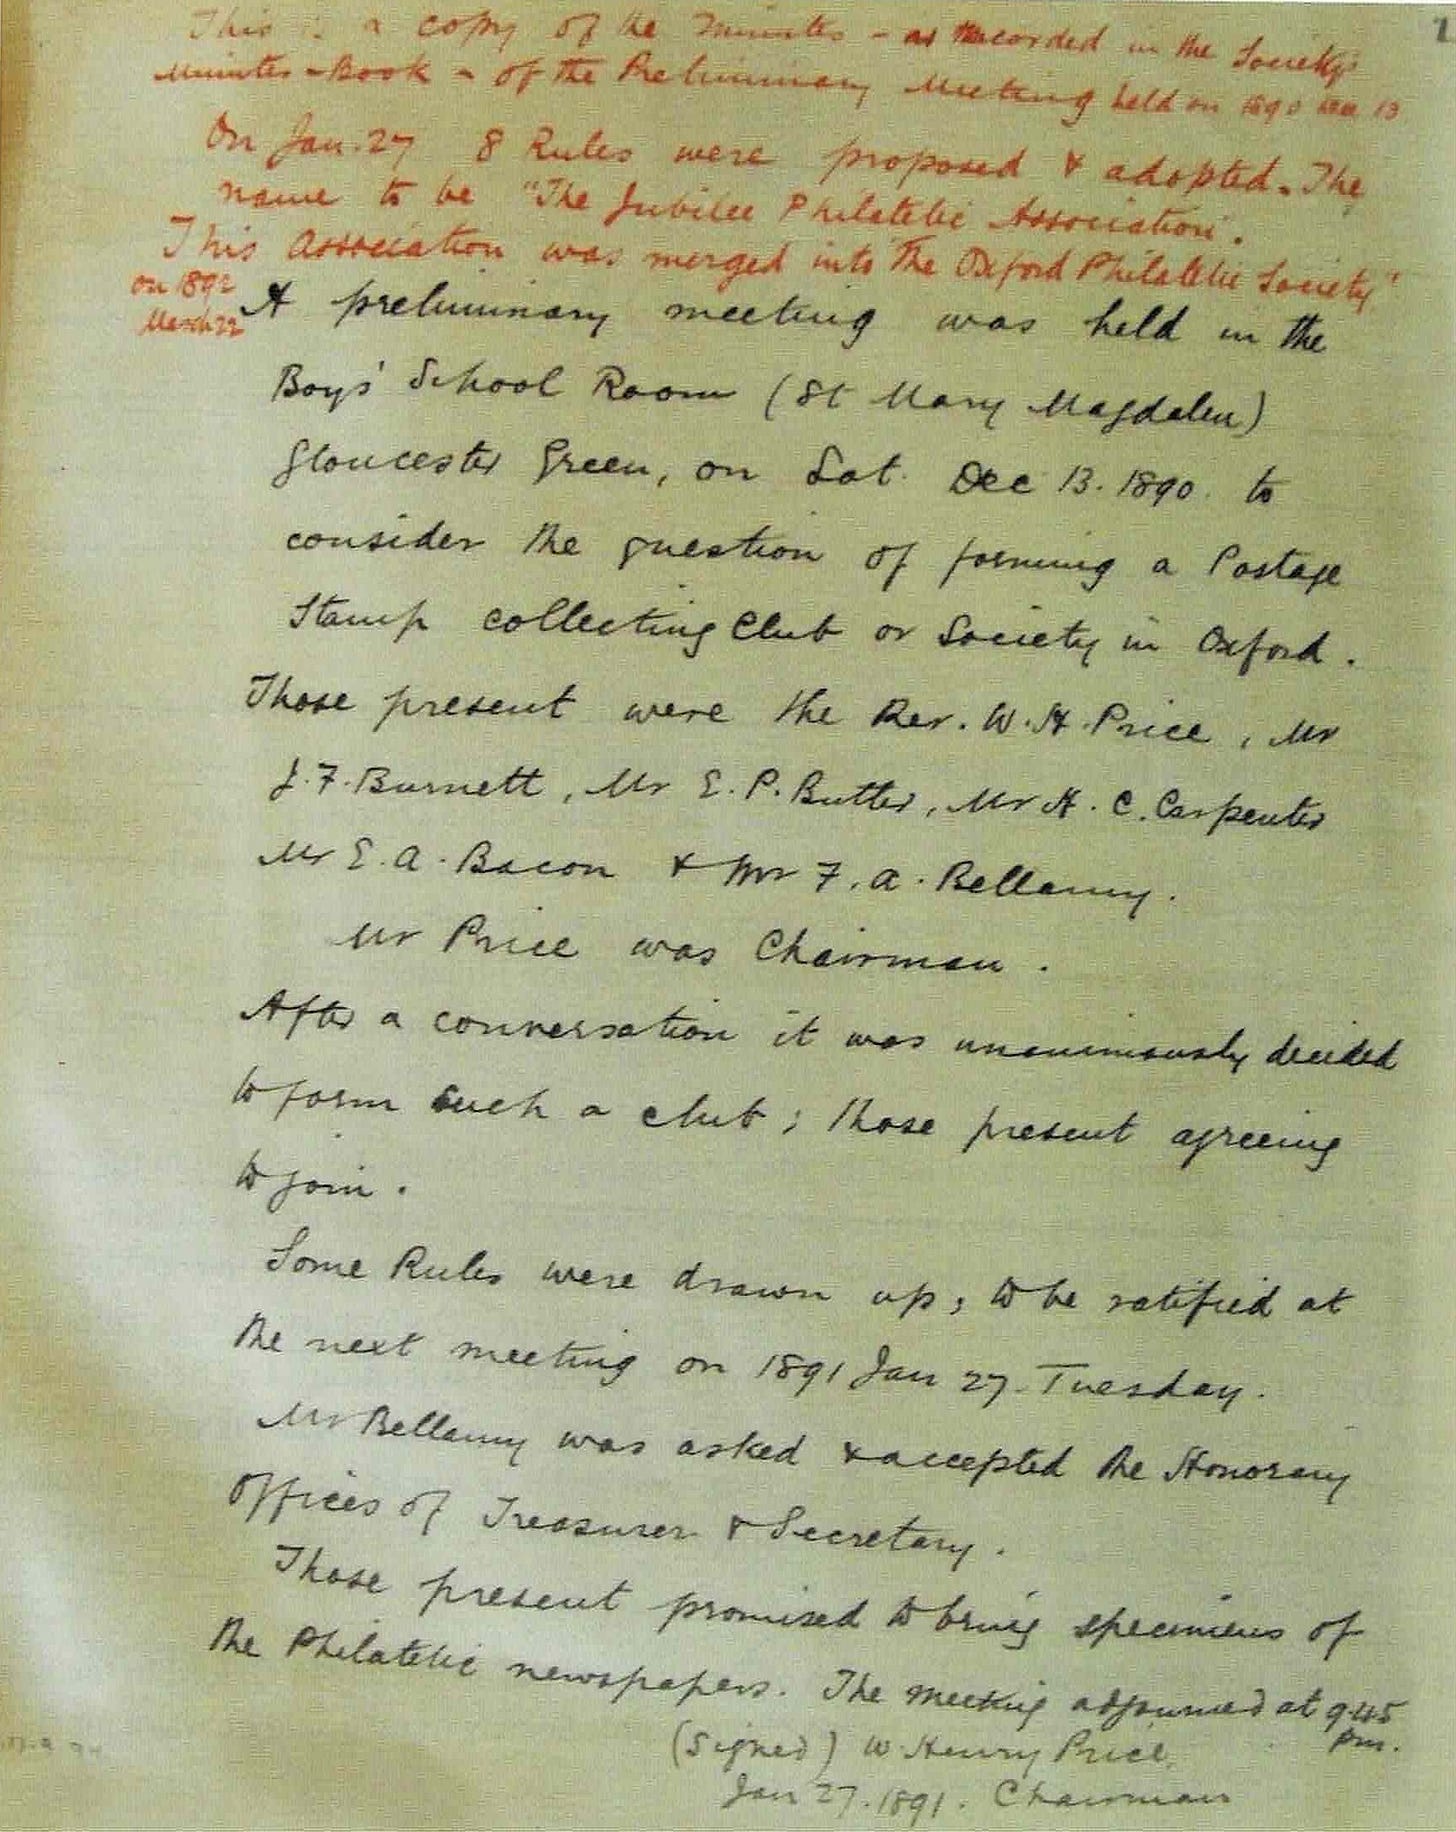 This is a copy of the Minutes - as recorded in the Society's
Minutes-Book - of the Preliminary Meeting held on 1890 Dec 13
On Jan. 27 8 Rules were proposed & adopted. The
name to be "The Jubilee Philatelic Association".
This Association was merged into "The Oxford Philatelic Society"
on 1892
March 22
A preliminary meeting was held in the
Boys' School Room (St Mary Magdalen)
Gloucester Green, on Sat. Dec 13. 1890. to
consider the question of forming a Postage
Stamp collecting Club or Society in Oxford.
Those present were the Rev. W. H. Price, Mr
J. F. Burnett, Mr E. P. Butler, Mr H. C. Carpenter
Mr E. A. Bacon & Mr F. A. Bellamy.
Mr Price was Chairman.
After a conversation it was unanimously decided
to form such a club; those present agreeing
to join.
Some Rules were drawn up, to be ratified at
the next meeting on 1891 Jan 27. Tuesday.
Mr Bellamy was asked & accepted the Honorary
Offices of Treasurer & Secretary.
Those present promised to bring specimens of
the Philatelic newspapers. The meeting adjourned at 9.45
pm.
(Signed) W. Henry Price.
Jan 27. 1891. Chairman